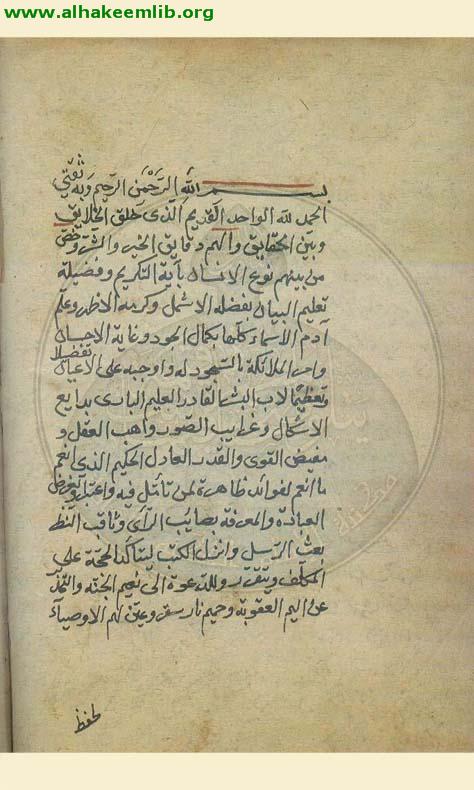 www.alhakeemlib.org
بسم الله الرحمن الرحيم وبه ثقتي
الحمد لله الواحد القديم الذي خلق الخلايق
وبين الحقايق والهم دقايق الخير والشر وخص
من بينهم نوع الانسان بآية التكريم وفضيلة
تعليم البيان بفضله الاشمل وكرمه الاظهر وعلم
آدم الاسماء كلها بكمال الجود وغاية الاحسان
وامر الملائكة بالسجود له واوجبه على الاعيان تفضلا
وتعظيما لاب البشر القادر العليم الباري بدايع
الاشكال وغرايب الصور واهب العقل و
مفيض القوى والقدر العادل الحكيم الذي انعم
ما انعم لفوائد ظاهرة لمن تأمل فيه واعتبر
العبادة والمعرفة بصايب الرأى وثاقب النظر
بعث الرسل وانزل الكتب ليتأكد الحجة على
المكلف ويتقرر وللدعوة الى نعيم الجنة
عن اليم العقوبة وجحيم نار سقر وعين لهم الاوصياء
لحفظ